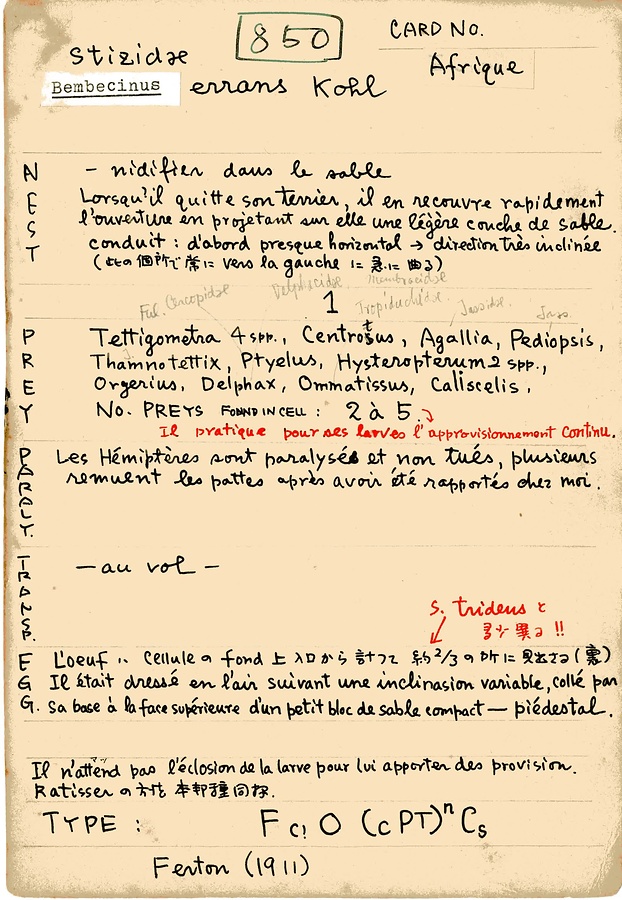 850
CARD NO.
Stizidae
Afrique
Bembecinus errans Kohl
NEST
- nidifier dans le sable
Lorsqu'il quitte son terrier, il en recouvre rapidement
l'ouverture en projetant sur elle une légère couche de sable.
conduit : d'abord presque horizontal → direction très inclinée
(此の個所で常に vers la gauche に急に曲る)
Ful. Cercopidae Delphacidae Membracidae
1
Tropiduchidae Jassidae Jass.
PREY
Tettigometra 4 spp., Centrotus, Agallia, Pediopsis,
Thamnotettix, Ptyelus, Hysteropterum 2 spp.,
Orgerius, Delphax, Ommatissus, Caliscelis,
No. PREYS FOUND IN CELL : 2 à 5.
Il pratique pour ses larves l'approvisionnement continu.
PARALY.
Les Hémiptères sont paralysés et non tués, plusieurs
remuent les pattes après avoir été rapportés chez moi.
TRANSP.
- au vol -
S. tridens と
多少異る!!
EGG.
L'oeuf ハ cellule の fond 上 入口から計つて 約2/3の所に見出さる(裏)
Il était dressé en l'air suivant une inclinasion variable, collé par
sa base à la face supérieure d'un petit bloc de sable compact — piédestal.
Il n'attend pas l'éclosion de la larve pour lui apporter des provision.
Ratisser の方法 本邦種同様.
TYPE : F C! O (C PT)ⁿ Cs
Ferton (1911)